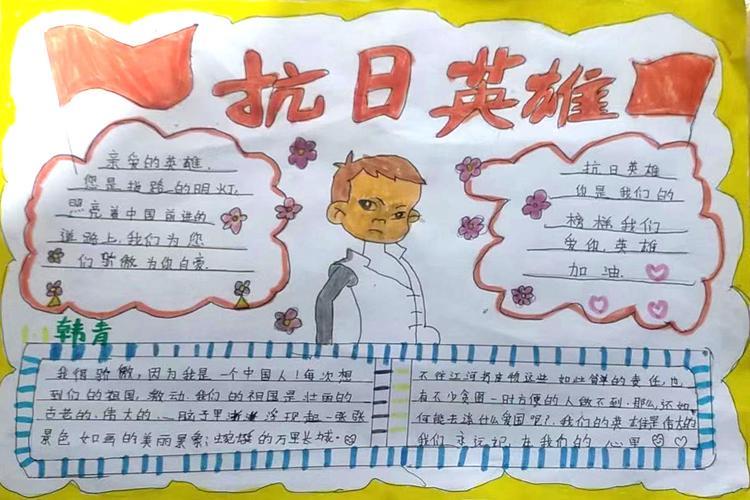 抗日英雄
亲爱的英雄.
您是指路的明灯.
照亮着中国前进的
道路上.我们为您
们骄傲为你自豪.
抗日英雄
你是我们的
榜样我们
爱你.英雄
加油.
韩青
我很骄傲,因为我是一个中国人!每次想
到们的祖国,激动.我们的祖国是壮丽的
古老的.伟大的.一脑子里浮现起一张张
景色如画的美丽景象:蜿蜒的万里长城。
不往江河扔生物这些如此简单的责任,也
有不少贪图一时方便的人做不到.那么,还如
何能去谈什么爱国呢?.我们的英雄是伟大的
我们永远记在我们的心里